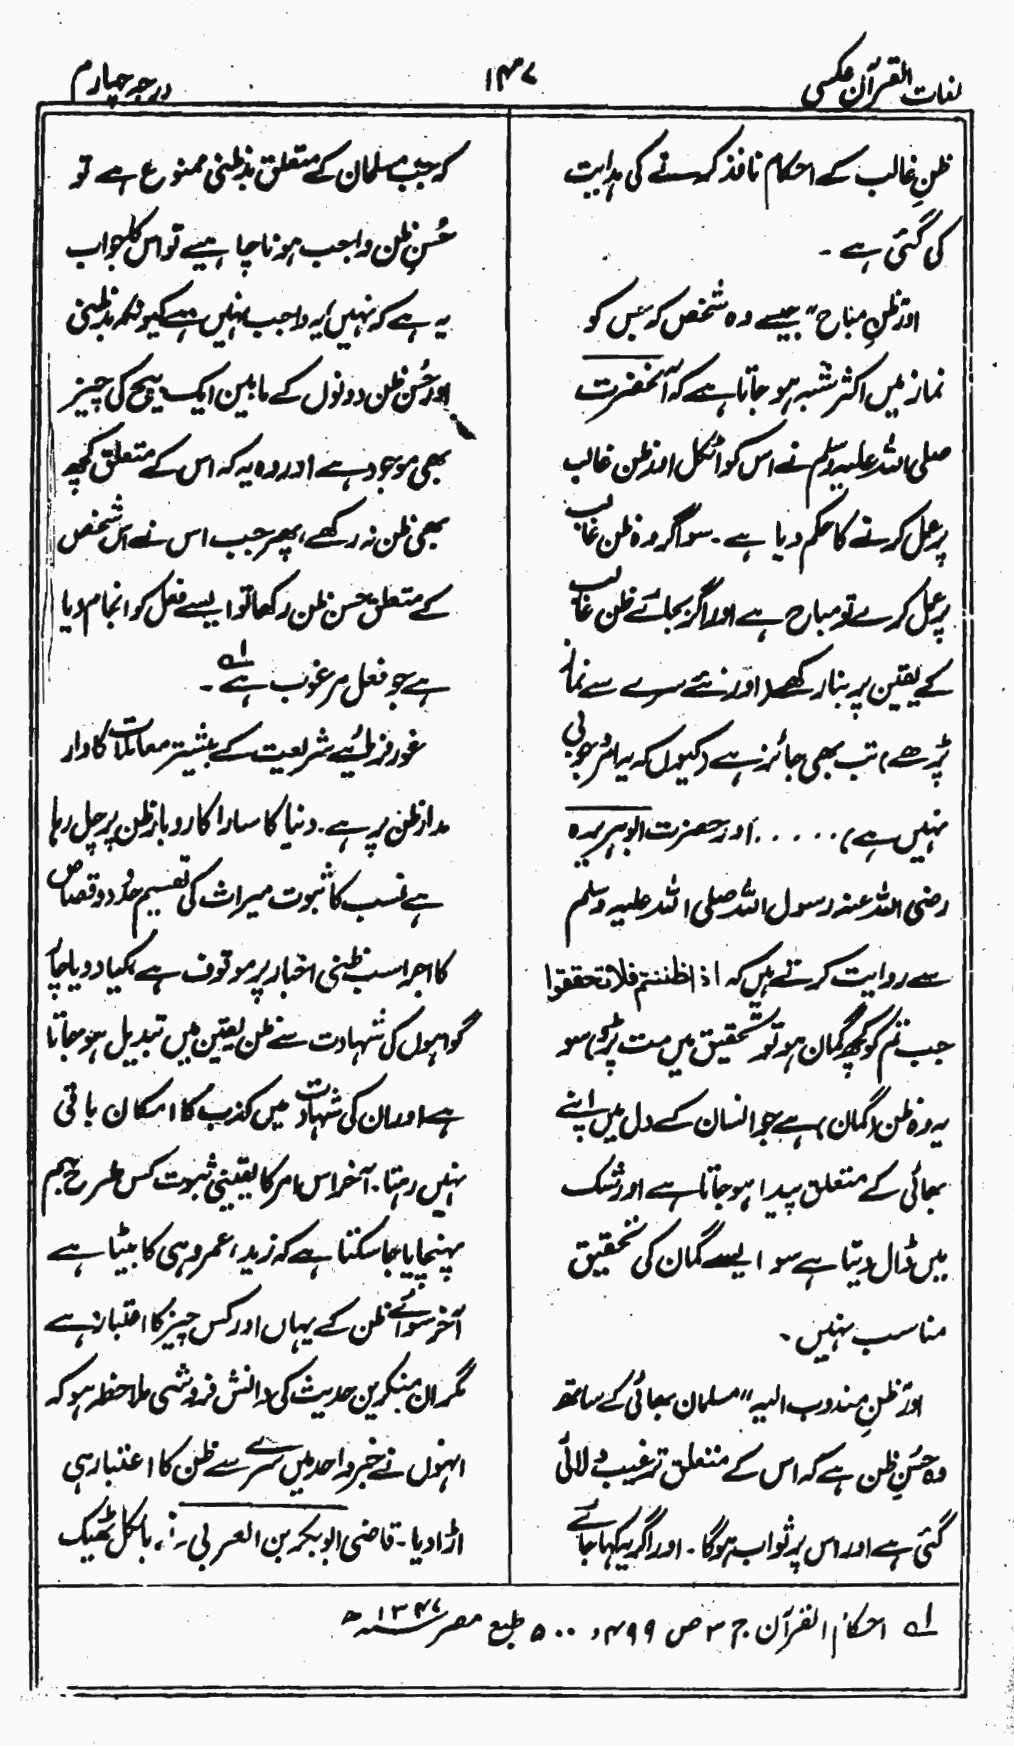 لغات القرآن عکسی
۱۴۷
درجہ چہارم
ظنِ غالب کے احکام نافذ کرنے کی ہدایت
کی گئی ہے ۔
اور ظنِ مباح" جیسے وہ شخص کہ جس کو
نماز میں اکثر شبہ ہو جاتا ہے کہ آنحضرت
صلی اللہ علیہ وسلم نے اس کو اٹکل اور ظن غالب
پر عمل کرنے کا حکم دیا ہے ۔ سو اگر وہ ظن غالب
پر عمل کرے تو مباح ہے اور اگر بجائے ظن غالب
کے یقین پر بنا رکھے (اور نئے سرے سے نماز
پڑھے) تب بھی جائز ہے (کیوں کہ یہ امر وجوبی
نہیں ہے) ..... اور حضرت ابوہریرہ
رضی اللہ عنہ رسول اللہ صلی اللہ علیہ وسلم
سے روایت کرتے ہیں کہ اذا ظننتم فلا تحققوا
جب تم کو کچھ گمان ہو تو تحقیق میں مت پڑو) سو
یہ وہ ظن (گمان) ہے جو انسان کے دل میں اپنے
بھائی کے متعلق پیدا ہو جاتا ہے اور شک
میں ڈال دیتا ہے سو ایسے گمان کی تحقیق
مناسب نہیں ۔
اور ظنِ مندوب الیہ" مسلمان بھائی کے ساتھ
وہ حُسنِ ظن ہے کہ اس کے متعلق ترغیب دلائی
گئی ہے اور اس پر ثواب ہوگا ۔ اور اگر یہ کہا جائے
کہ جب مسلمان کے متعلق بدظنی ممنوع ہے تو
حُسنِ ظن واجب ہونا چاہیے تو اس کا جواب
یہ ہے کہ نہیں) یہ واجب نہیں ہے کیونکہ بدظنی
اور حُسنِ ظن دونوں کے مابین ایک بیچ کی چیز
بھی موجود ہے اور وہ یہ کہ اس کے متعلق کچھ
بھی ظن نہ رکھے، پھر جب اس نے اس شخص
کے متعلق حسن ظن رکھا تو ایسے فعل کو انجام دیا
ہے جو فعل مرغوب ہے لہ ۔
غور فرمائیے شریعت کے بیشتر معاملات کا دار
مدار ظن پر ہے ۔ دنیا کا سارا کاروبار ظن پر چل رہا
ہے نسب کا ثبوت میراث کی تقسیم حدود و قصاص
کا اجرا سب ظنی اخبار پر موقوف ہے، کیا دو یا چار
گواہوں کی شہادت سے ظن یقین میں تبدیل ہو جاتا
ہے اور ان کی شہادت میں کذب کا امکان باقی
نہیں رہتا ۔ آخر اس امر کا یقینی ثبوت کس طرح بہم
پہنچایا جا سکتا ہے کہ زید، عمرو ہی کا بیٹا ہے
آخر سوائے ظن کے یہاں اور کس چیز کا اعتبار ہے
مگر ان منکرین حدیث کی دانش فروشی ملاحظہ ہو کہ
انہوں نے خبر واحد میں سرے سے ظن کا اعتبار ہی
اڑا دیا ۔ قاضی ابوبکر بن العربی نے بالکل ٹھیک
لہ احکام القرآن ج ۳ ص ۴۹۹، ۵۰۰ طبع مصر ۱۳۴۷ھ